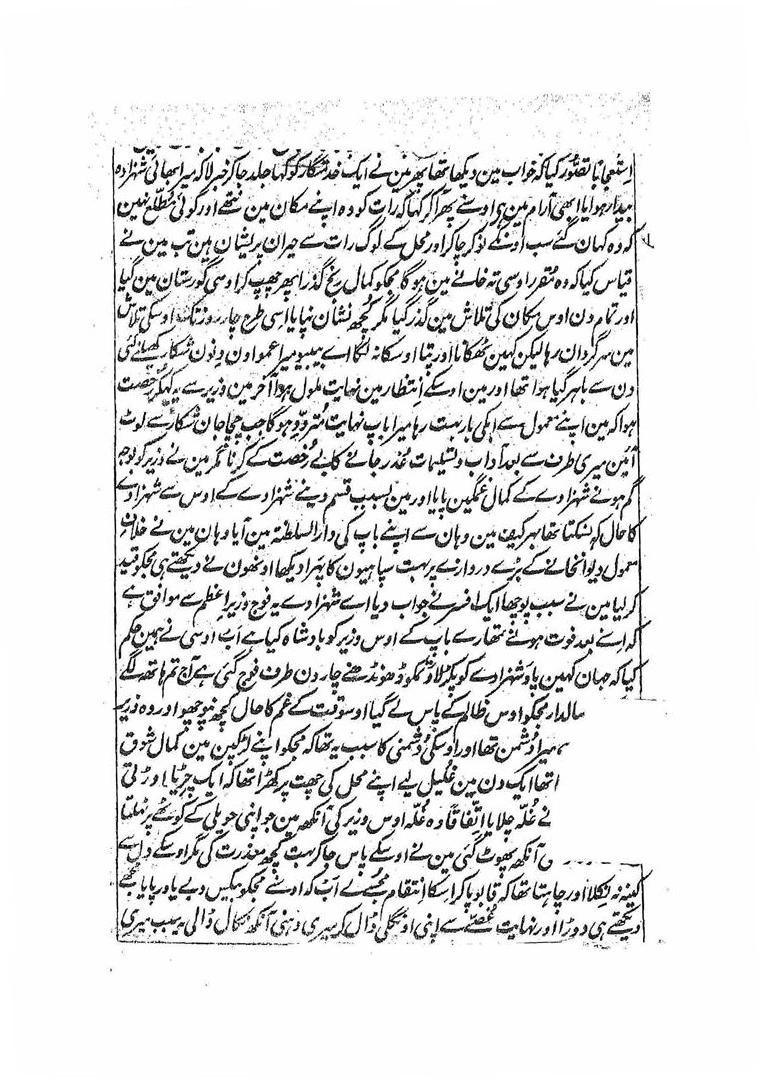 استعجاباً تصور کیا کہ خواب مین دیکھا تھا پھر مین نے ایک خدمتگار کو کہا جلد جا کر خبر لا کہ میرا بھائی شہزادہ
بیدار ہوا یا ابھی آرام مین ہی اوسنے پھر آ کر کہا کہ رات کو وہ اپنے مکان مین نتھے اور کوئی مطلع نہین
کہ وہ کہان گئے سب اونکے نوکر چاکر اور محل کے لوگ رات سے حیران پریشان ہین تب مین نے
قیاس کیا کہ وہ مقرر اوسی تہ خانے مین ہوگا مجکو کمال رنج گذرا پھر چھپ کر اوسی گورستان مین گیا
اور تمام دن اوس مکان کی تلاش مین گذر گیا مگر کچھ نشان نپایا اسی طرح چار روز تک اوسکی تلاش
مین سرگردان رہا لیکن کہین ٹھکانا اور پتا اوسکا نہ لگا اے بیبیو میرا عمو اون دنون شکار کھیلنے کئی
دن سے باہر گیا ہوا تھا اور مین اوسکے انتظار مین نہایت ملول ہوا آخر مین وزیر سے یہ کہکر رخصت
ہوا کہ مین اپنے معمول سے ابکی بار بہت رہا میرا باپ نہایت متردد ہوگا جب چچا جان شکار سے لوٹ
آئین میری طرف سے بعد آداب و تسلیمات عذر جانے کا بے رخصت کے کرنا مگر مین نے وزیر کو بوجہ
گم ہونے شہزادے کے کمال غمگین پایا اور مین بسبب قسم دینے شہزادے کے اوس سے شہزادے
کا حال کہ نسکتا تھا بہرکیف مین وہان سے اپنے باپ کی دار السلطنۃ مین آیا وہان مین نے خلاف
معمول دیوانخانے کے بڑے دروازے پر بہت سپاہیون کا پہرا دیکھا اونھون نے دیکھتے ہی مجکو قید
کر لیا مین نے سبب پوچھا ایک افسر نے جواب دیا اے شہزادے یہ فوج وزیر اعظم سے موافق ہے
کہ اسنے بعد فوت ہونے تمھارے باپ کے اوس وزیر کو بادشاہ کیا ہے اب اوسی نے ہمین حکم
کیا کہ جہان کہین پاؤ شہزادے کو پکڑ لاؤ تمکو ڈھونڈھنے چارون طرف فوج گئی ہے آج تم ہاتھ لگے
مالدار مجکو اوس ظالم کے پاس لے گیا اوسوقت کے غم کا حال کچھ نپوچھو اور وہ وزیر
میرا دشمن تھا اور اوسکی دشمنی کا سبب یہ تھا کہ مجکو اپنے لڑکپن مین کمال شوق
تھا ایک دن مین غلیل لیے اپنے محل کی چھت پر کھڑا تھا کہ ایک چڑیا اوڑتی
نے غلہ چلایا اتفاقاً وہ غلہ اوس وزیر کی آنکھ مین جو اپنی حویلی کے کوٹھے پر ٹہلتا
آنکھ پھوٹ گئی مین نے اوسکے پاس جا کر بہت کچھ معذرت کی مگر اوسکے دل سے
کینہ نہ نکلا اور چاہتا تھا کہ قابو پا کر اسکا انتقام مجھسے لے اب کہ اوسنے مجکو بیکس و بے یاور پایا مجھے
دیکھتے ہی دوڑا اور نہایت غصے سے اپنی اونگلی ڈال کر میری دہنی آنکھ نکال ڈالی یہ سبب میری